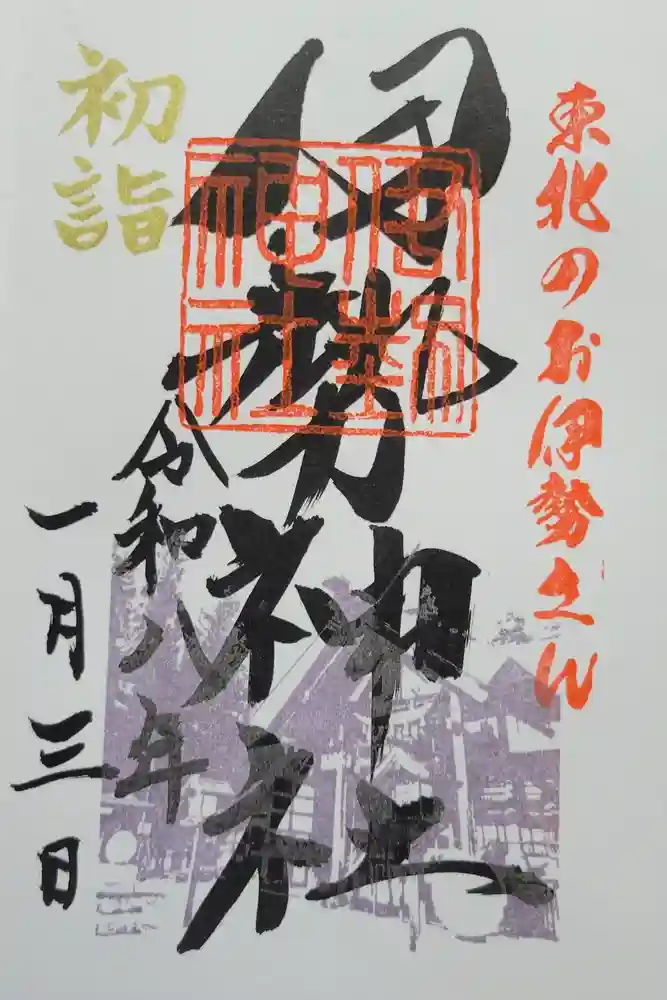 東北のお伊勢さん
伊勢神社
伊勢
神社
初詣
令和八年
一月三日